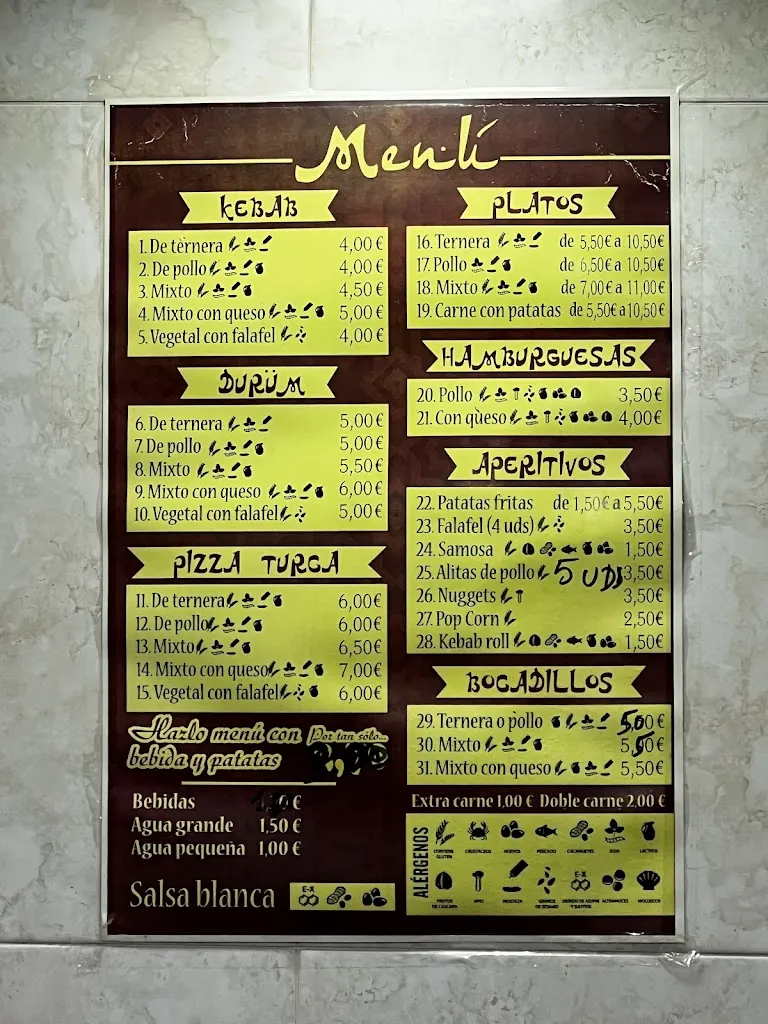 Menú
KEBAB
1. De ternera 4,00€
2. De pollo 4,00€
3. Mixto 4,50€
4. Mixto con queso 5,00€
5. Vegetal con falafel 4,00€
DURÜM
6. De ternera 5,00€
7. De pollo 5,00€
8. Mixto 5,50€
9. Mixto con queso 6,00€
10. Vegetal con falafel 5,00€
PIZZA TURCA
11. De ternera 6,00€
12. De pollo 6,00€
13. Mixto 6,50€
14. Mixto con queso 7,00€
15. Vegetal con falafel 6,00€
Hazlo menú con Por tan sólo...
bebida y patatas
Bebidas €
Agua grande 1,50 €
Agua pequeña 1,00 €
Salsa blanca E-X
PLATOS
16. Ternera de 5,50€ a 10,50€
17. Pollo de 6,50€ a 10,50€
18. Mixto de 7,00€ a 11,00€
19. Carne con patatas de 5,50€ a 10,50€
HAMBURGUESAS
20. Pollo 3,50€
21. Con qùeso 4,00€
APERITIVOS
22. Patatas fritas de 1,50€ a 5,50€
23. Falafel (4 uds) 3,50€
24. Samosa 1,50€
25. Alitas de pollo 5 UDS 3,50€
26. Nuggets 3,50€
27. Pop Corn 2,50€
28. Kebab roll 1,50€
BOCADILLOS
29. Ternera o pollo 5,00€
30. Mixto 5,50€
31. Mixto con queso 5,50€
Extra carne 1,00 € Doble carne 2,00 €
ALÉRGENOS
CONTIENE GLUTEN CRUSTÁCEOS HUEVOS PESCADO CACAHUETES SOJA LÁCTEOS
E-X
FRUTOS DE CÁSCARA APIO MOSTAZA GRANOS DE SÉSAMO ALTRAMUCES MOLUSCOS